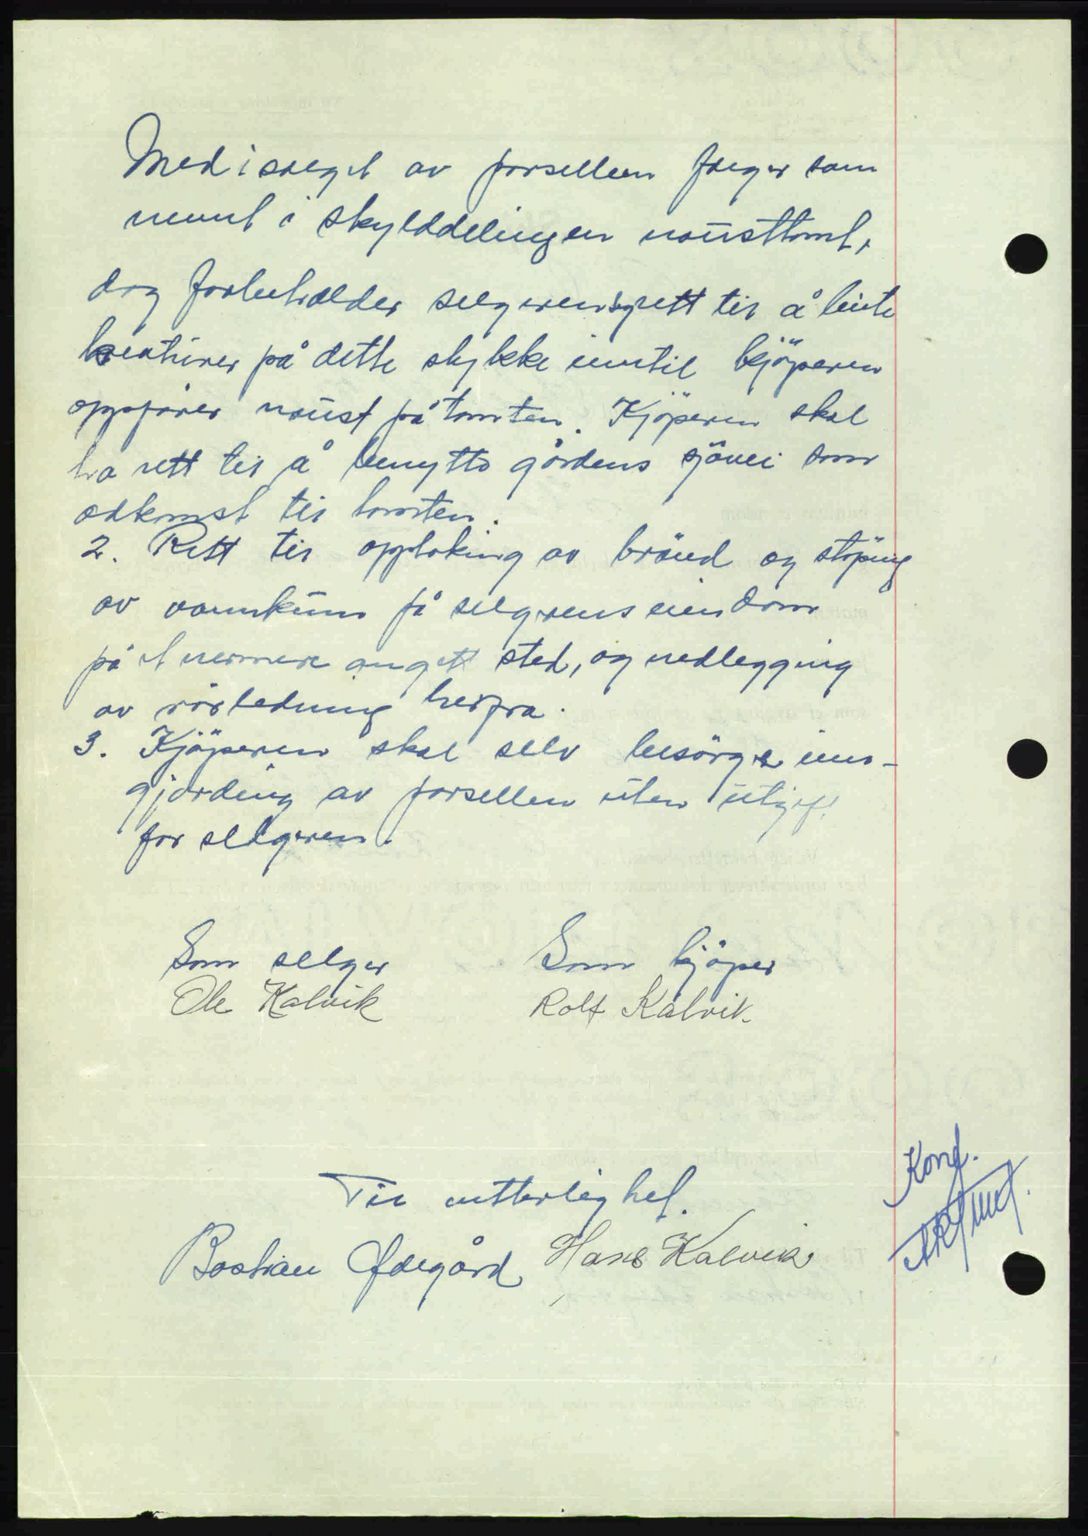 Med i salget av parsellen følger som
nemnt i skylddelingen nausttomt,
dog forbeholder selgeren sg rett til å beite
kreaturer på dette stykke inntil kjöperen
oppfører naust på tomten. Kjöperen skal
ha rett til å benytte gårdens sjövei som
adkomst til tomten.
2. Rett til opptaking av brönd og stöping
av vannkum på selgerens eiendom
på et nermere anget sted, og nedlegging
av rörledning herfra.
3. Kjöperen skal selv besörge inn-
gjerding av parsellen uten utgift
for selgeren.
Som selger Som kjöper
Ole Kalvik Rolf Kalvik
Til vitterlighet.
Bastian Ødegård Hans Kalvik
Konf.